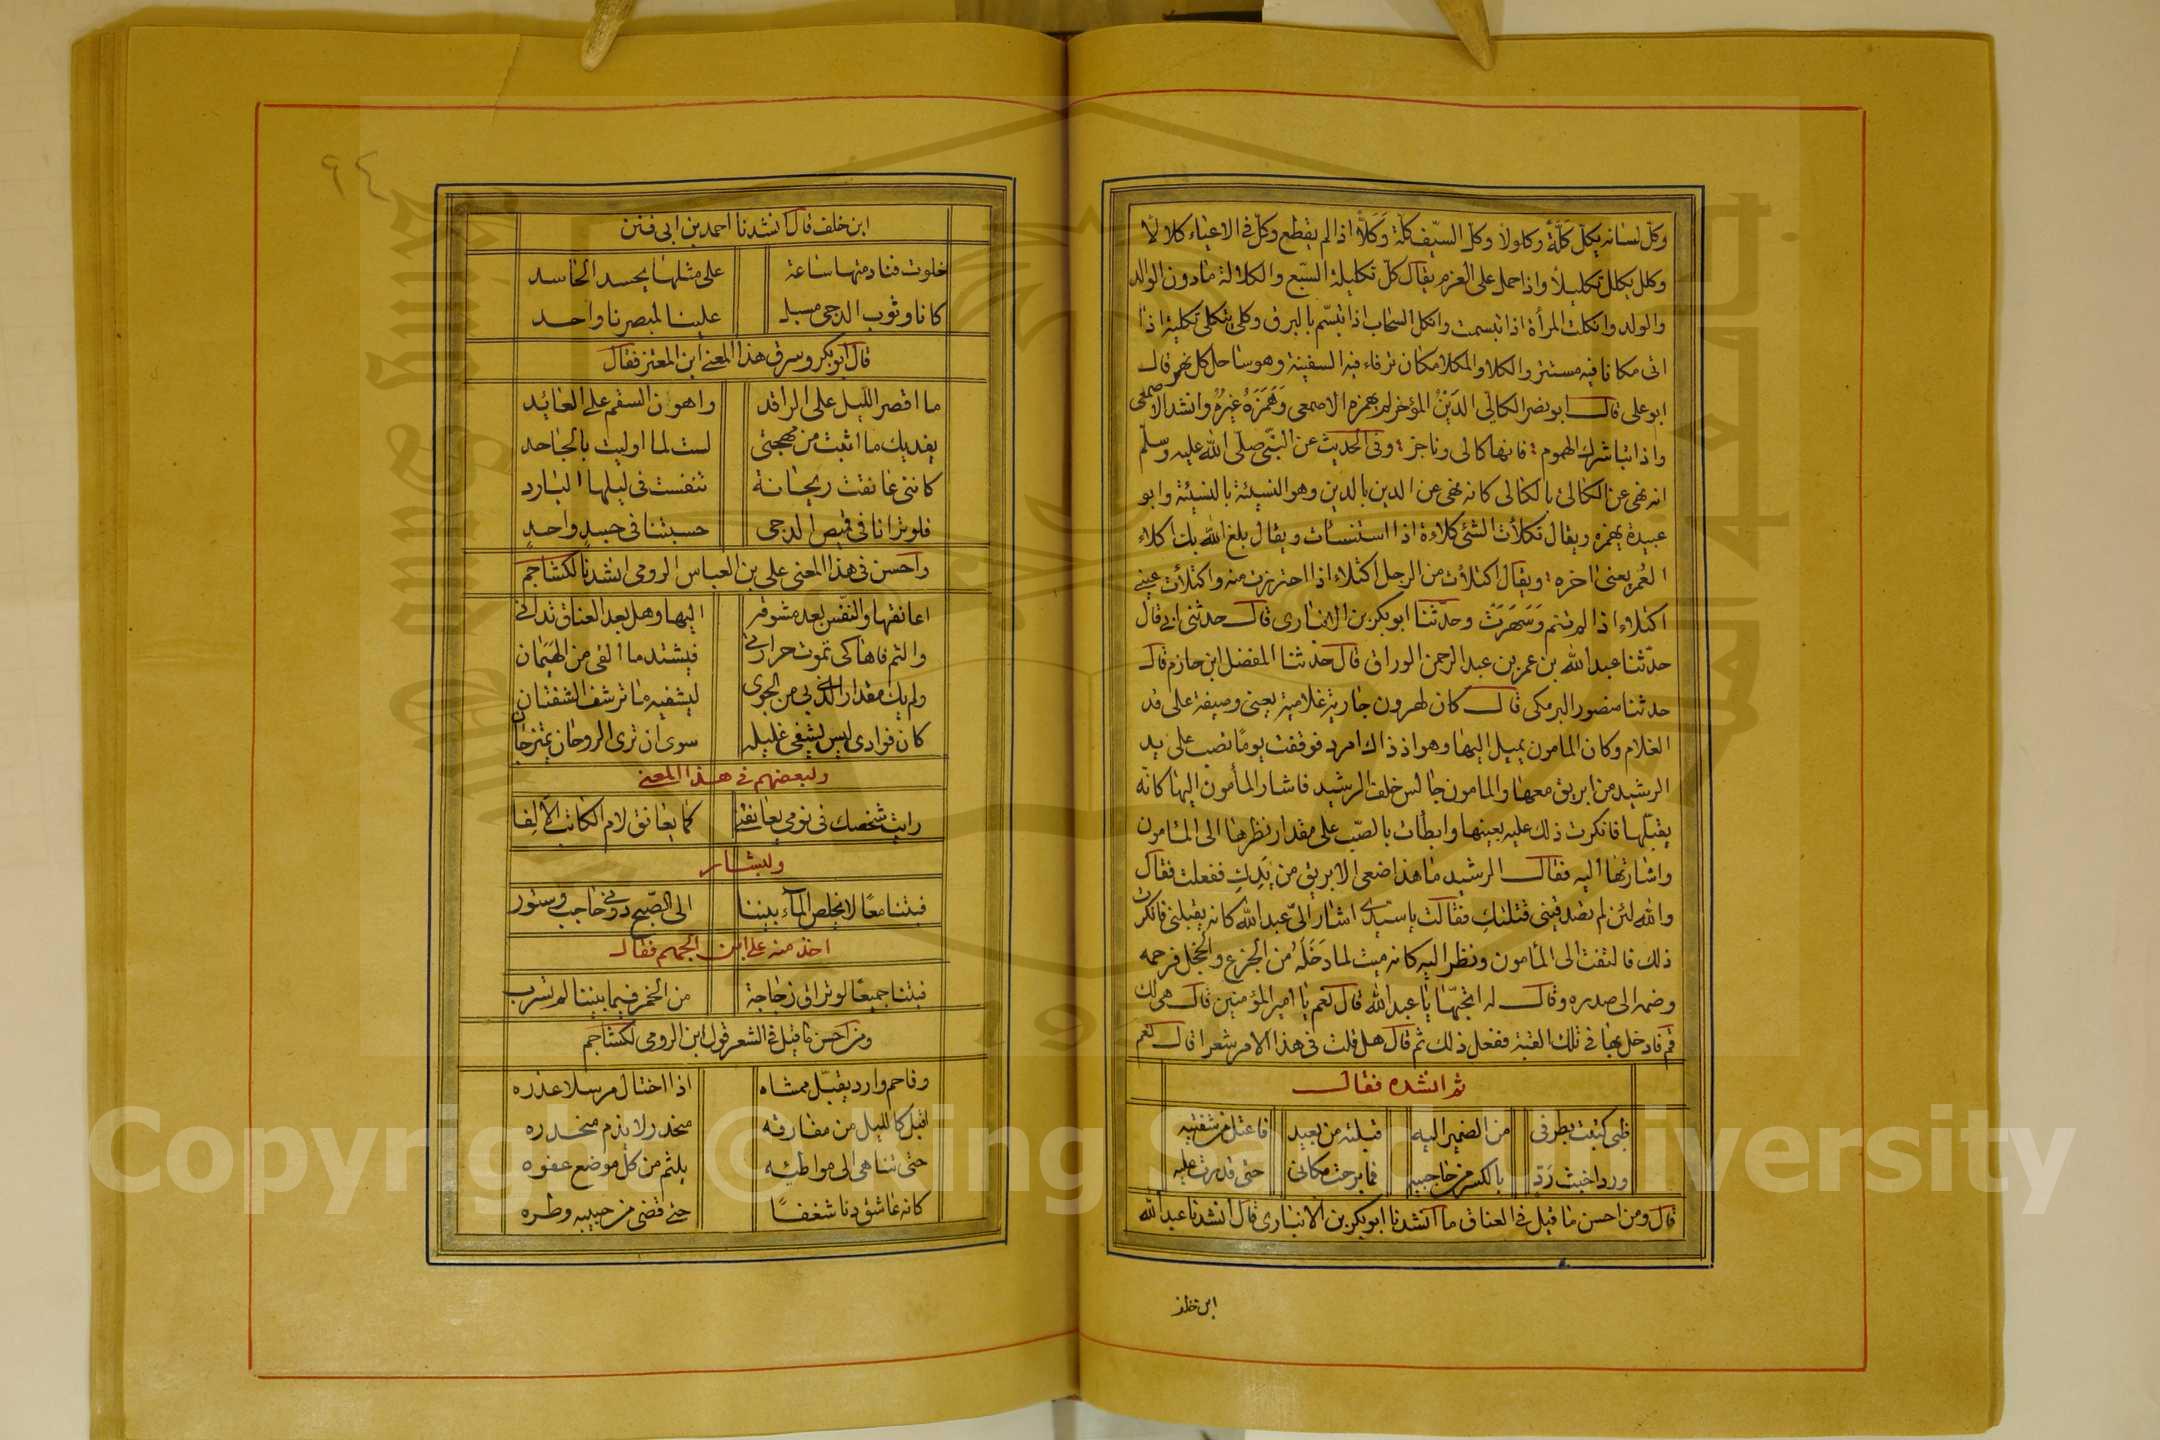 وكلّ لسانه يكلّ كَلَّةً وكلولا وكلّ السيّف كلّة وَكَلاًّ اذا لم يقطع وكلّ في الاعياء كلالا
وكلل يكلل تكليلا واذا حمل على العزم يقال كلّ تكليلة السبّع والكلالة مادون الوالد
والولد وانكلت المرأة اذا تبسمت وانكل السحاب اذا تبسّم بالبرق وكلّى يتكلى تكلية اذا
اتى مكانا فيه مستتر والكلاو المكلا مكان ترفاء فيه السفينة وهو ساحل كل نهر قال
ابو على قال ابو نصر الكالي الدَيْنُ المؤخر لم يهمزه الاصمعى وَهَمَزَهُ غيرُهُ وانشد الاصمعى
واذا تباشرك الهموم فانها كالى وناجز وفى الحديث عن النبّى صلّى الله عليه وسلّم
انه نهى عن الكالئ بالكالى كانه نهى عن الدين بالدين وهو النسيئة بالنسيئة وابو
عبيدة يهمزه ويقال تكلأت الشئ كلاءة اذا استنسأت ويقال بلغ الله بك اكلاء
العُمر يعنى اخره ويقال اكتلأت من الرجل اكتلاء اذا احترزت منه واكتلأت عينى
اكتلاء اذا لم تنم وَسَهَرَتْ وحدّثنا ابو بكر بن الانبارى قال حدثنى ابى قال
حدّثنا عبد الله بن عمر بن عبد الرحمن الوراق قال حدثنا المفضل ابن حازم قال
حدثنا منصور البرمكى قال كان لهرون جارية غلامية يعنى وصيفة على قد
الغلام وكان المامون يميل اليها وهو اذ ذاك امرد فوقفت يومًا تصب على يد
الرشيد من ابريق معها والمامون جالس خلف الرشيد فاشار المأمون اليها كانّه
يقبّلها فانكرت ذلك عليه بعينها وابطأت بالصّب على مقدار نظرها الى المامون
واشارتها اليه فقال الرشيد ما هذا ضعى الابريق من يَدِكِ ففعلت فقال
والله لئن لم تصدقينى قتلتك فقالت يا سيدى اشار الىّ عبد الله كانه يقبلنى فانكرت
ذلك فالتفت الى المأمون ونظر اليه كانه ميت لما دَخَلَهُ من الجزع والخجل فرحمه
وضمه الى صدره وقال له اتحبّها يا عبد الله قال نعم يا امير المؤمنين قال هى لك
قم فادخل بها في تلك القبة ففعل ذلك ثم قال هل قلت فى هذا الامر شعرا قال نعم
ثم انشده فقال
ظبى كتبت بطرفى من الضمير اليه قبلته من بعيد فاعتل من شفتيه
ورد اخبث ردّ بالكسر من حاجبيه فما برحت مكانى حتى قدرت عليه
قال ومن احسن ما قيل في العناق ما انشدنا ابو بكر بن الانبارى قال انشدنا عبد الله
ابن خلف
٩٤
ابن خلف قال انشدنا احمد بن ابى فنن
خلوت فنادمتها ساعة على مثلها يحسد الحاسد
كانا وثوب الدجى مسبل علينا لمبصرنا واحد
قال ابو بكر وسرق هذا المعنى ابن المعتز فقال
ما اقصر الليل على الراقد واهون السقم على العائد
يفديك ما اثبت من مهجتى لست لما اوليت بالجاحد
كاننى عانقت ريحانة تنفست فى ليلها البارد
فلو ترانا فى قميص الدجى حسبتنا فى جسدٍ واحدٍ
واحسن فى هذا المعنى على بن العباس الرومى انشدنا لكشاجم
اعانقها والنّفس بعد مشوقة اليها وهل بعد العناق تدانى
والثم فاها كى تموت حرارتى فيشتد ما القى من الهيمان
ولم يك مقدار الذى بى من الجوى ليشفيه ما ترشف الشفتان
كان فوادى ليس يشفى غليله سوى ان ترى الروحان يمتزجان
ولبعضهم فى هذا المعنى
رايت شخصك فى نومى يعانقنى كما يعانق لام الكاتب الالفا
ولبشار
فبتنا معًا لا يخلص المآء بيننا الى الصّبح دونى حاجب وستور
اخذ منه على ابن الجهم فقال
فبتنا جميعًا لو تراق زجاجة من الخمر فيما بيننا لم تسرب
ومن احسن ما قيل فى الشعر قول ابن الرومى لكشاجم
وفاحم وارد يقبّل ممشاه اذا اختال مرسلا عذره
اقبل كالليل من مفارقه منحدر لا يذم منحدره
حتى تناهى الى مواطئه يلثم من كل موضع عفره
كانه عاشق دنا شغفًا حتى قضى من حبيبه وطره
Copyright © King Saud University